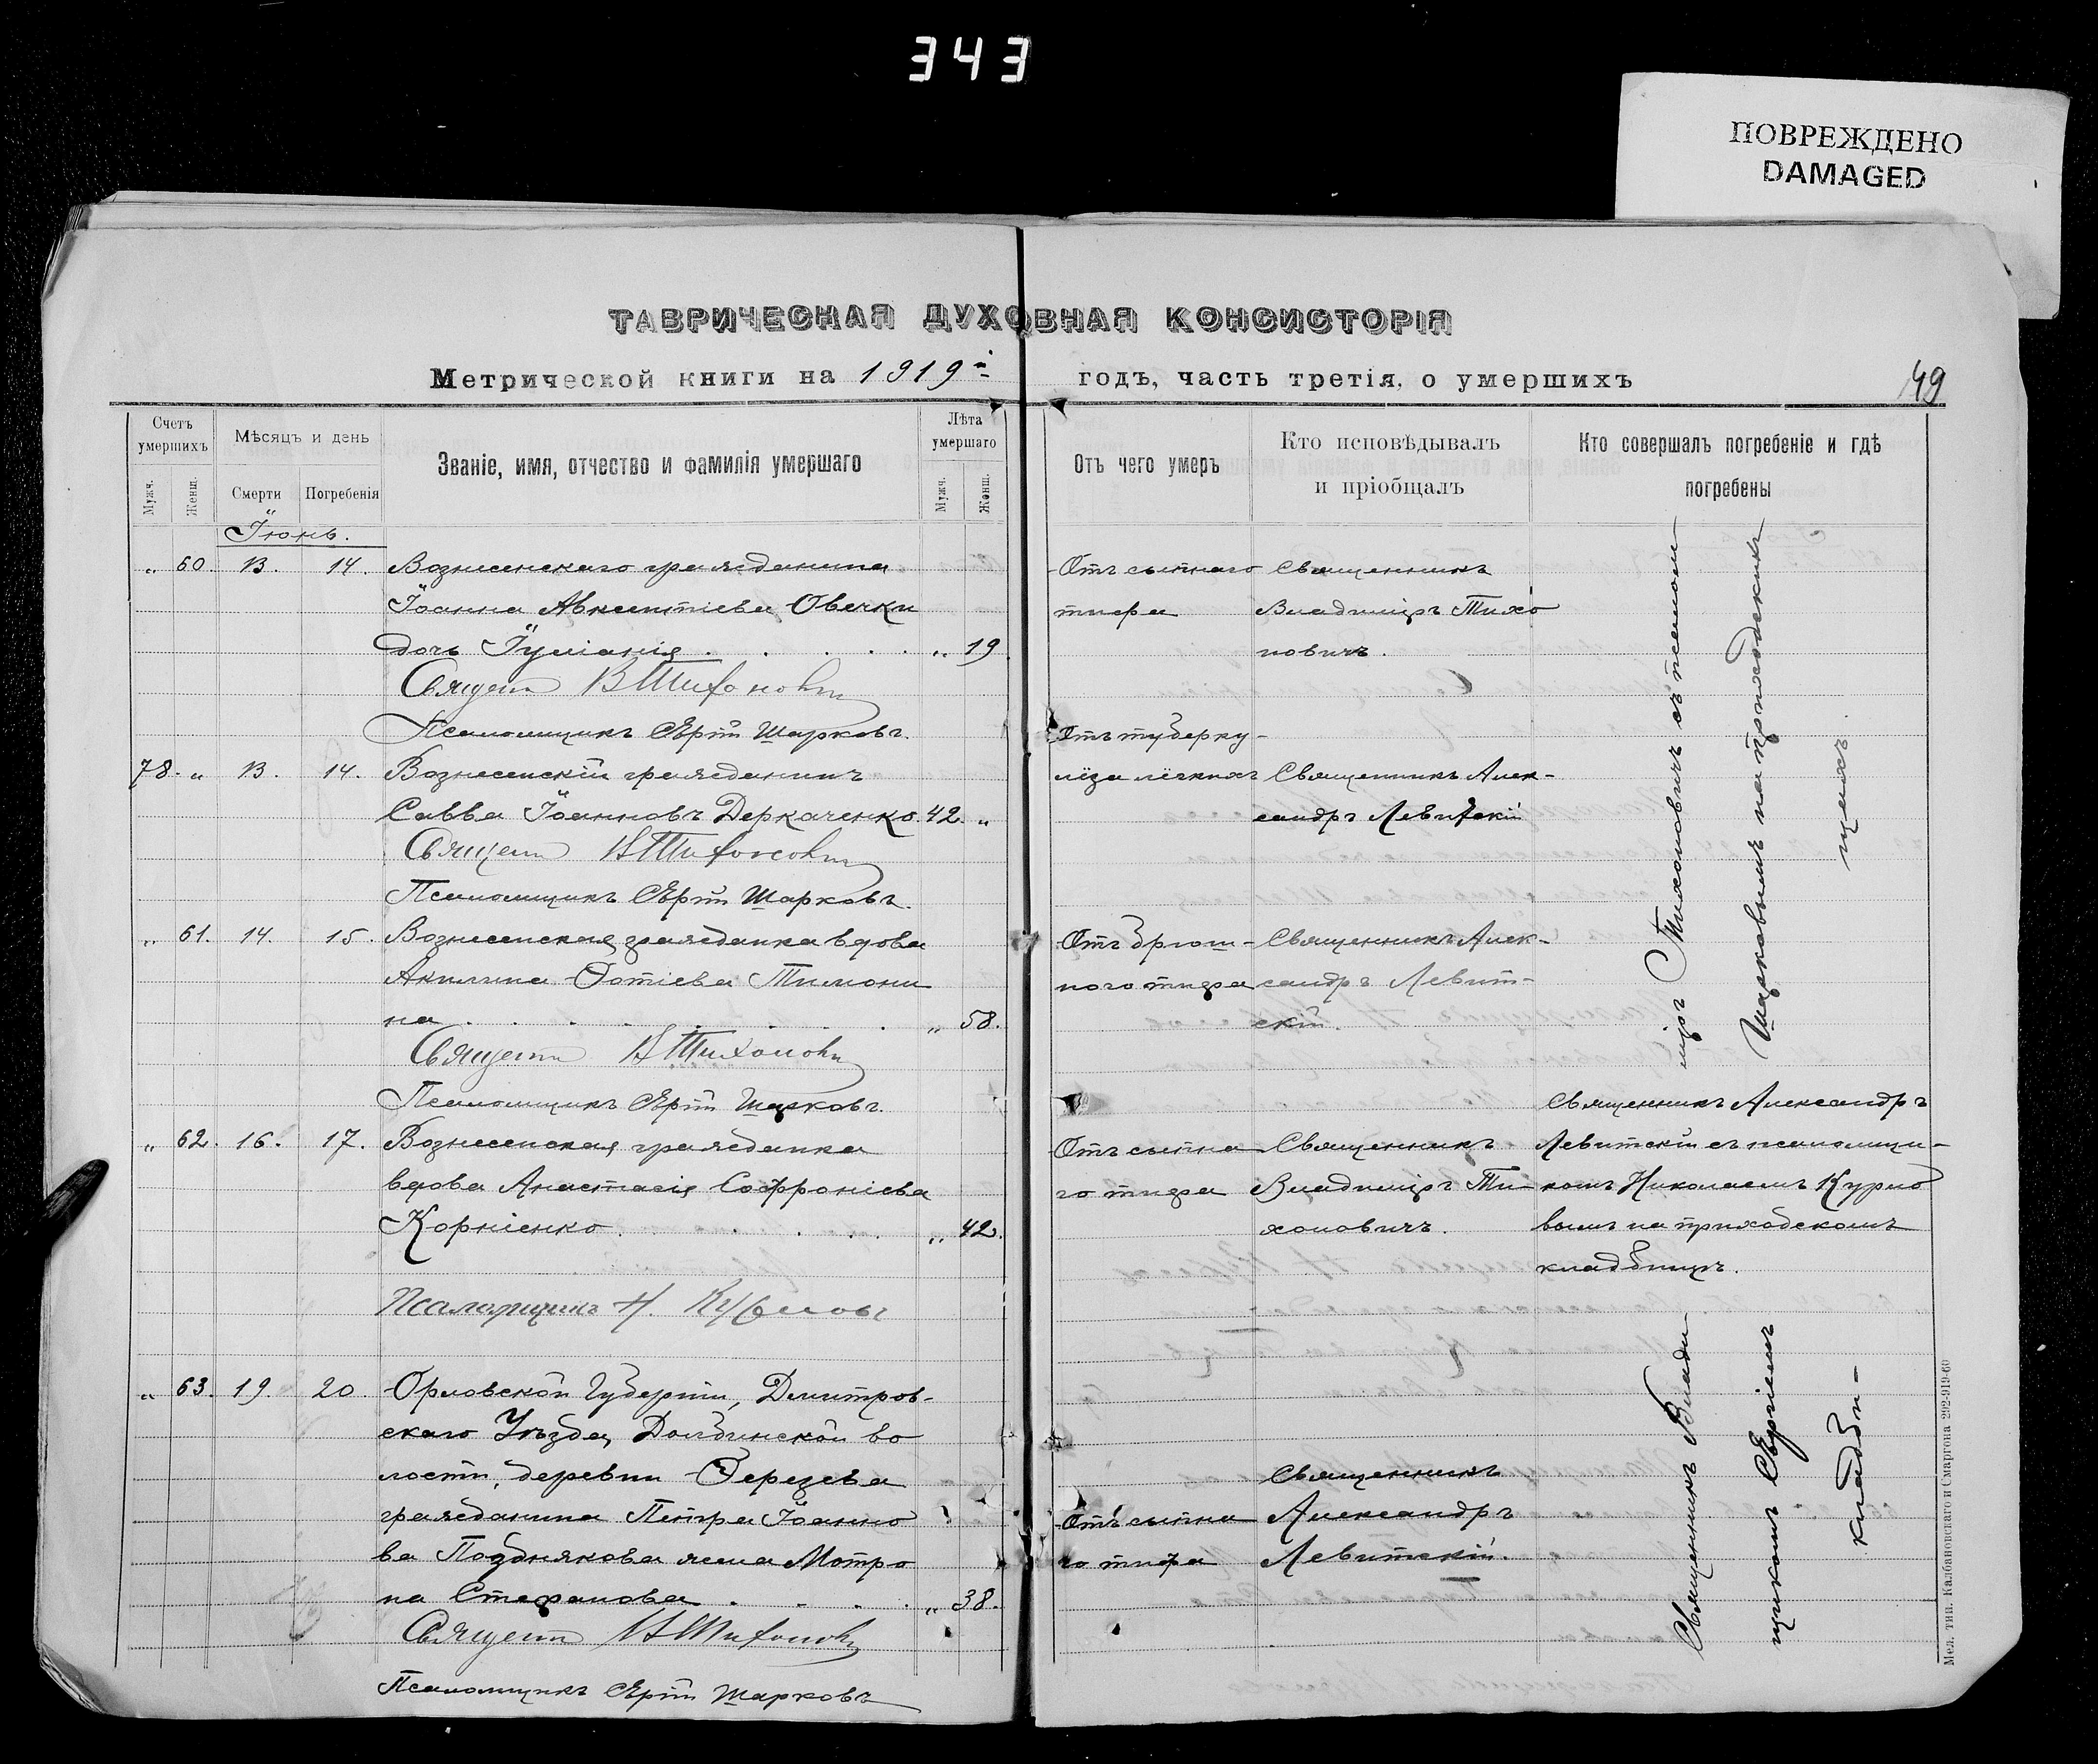 343
ПОВРЕЖДЕНО
DAMAGED
ТАВРИЧЕСКАЯ ДУХОВНАЯ КОНСИСТОРІЯ
Метрической книги на 1919й годъ, часть третія, о умершихъ
49
Счетъ умершихъ
Мужч.
Женщ.
Мѣсяцъ и день
Смерти
Погребенія
Званіе, имя, отчество и фамилія умершаго
Лѣта умершаго
Мужч.
Женщ.
Отъ чего умеръ
Кто исповѣдывалъ
и пріобщалъ
Кто совершалъ погребеніе и гдѣ
погребены
Іюнь.
„ 60. 13. 14. Вознесенскаго гражданина
Іоанна Авксентіева Овечки
дочь Іуліанія . . . . . „ 19
Священ ВТихонович
Псаломщикъ Сергій Шарковъ.
Отъ сыпнаго
тифа
Священникъ
Владиміръ Тихо
новичъ.
78. „ 13. 14. Вознесенскій гражданинъ
Савва Іоанновъ Деркаченко. 42. „
Священ ВТихонович
Псаломщикъ Сергій Шарковъ.
Отъ туберку-
лёза лёгкихъ
Священникъ Алек-
сандръ Левитскій
„ 61. 14. 15. Вознесенская гражданка вдова
Акилина Фотіева Тимони
на . . . . . . „ 58.
Священ ВТихонович
Псаломщикъ Сергій Шарковъ.
Отъ брюш-
ного тифа
Священникъ Алек-
сандръ Левит-
скій.
„ 62. 16. 17. Вознесенская гражданка
вдова Анастасія Софроніева
Корніенко . . . . . „ 42.
Псаломщикъ Н. Курловъ
Отъ сыпна
го тифа
Священникъ
Владиміръ Ти-
хоновичъ.
Священникъ Александръ
Левитскій съ псаломщи-
комъ Николаемъ Курло
вымъ на приходскомъ
кладбищѣ.
„ 63. 19. 20. Орловской Губерніи, Дмитров-
скаго Уѣзда, Долбинской во
лости, деревни
гражданина Петра Іоанно
ва Позднякова жена Мотро
на Стефанова . . . . „ 38.
Священ ВТихонович
Псаломщикъ Сергій Шарковъ
Отъ сыпна
го тифа
Священникъ
Александръ
Левитскій.
Священникъ Влади
міръ Тихоновичъ съ псалом
щикомъ Сергіемъ
Шарковымъ на приходскихъ
кладби-
щахъ
Мел. тип. Калбановскаго и Смаргона 292-919-60